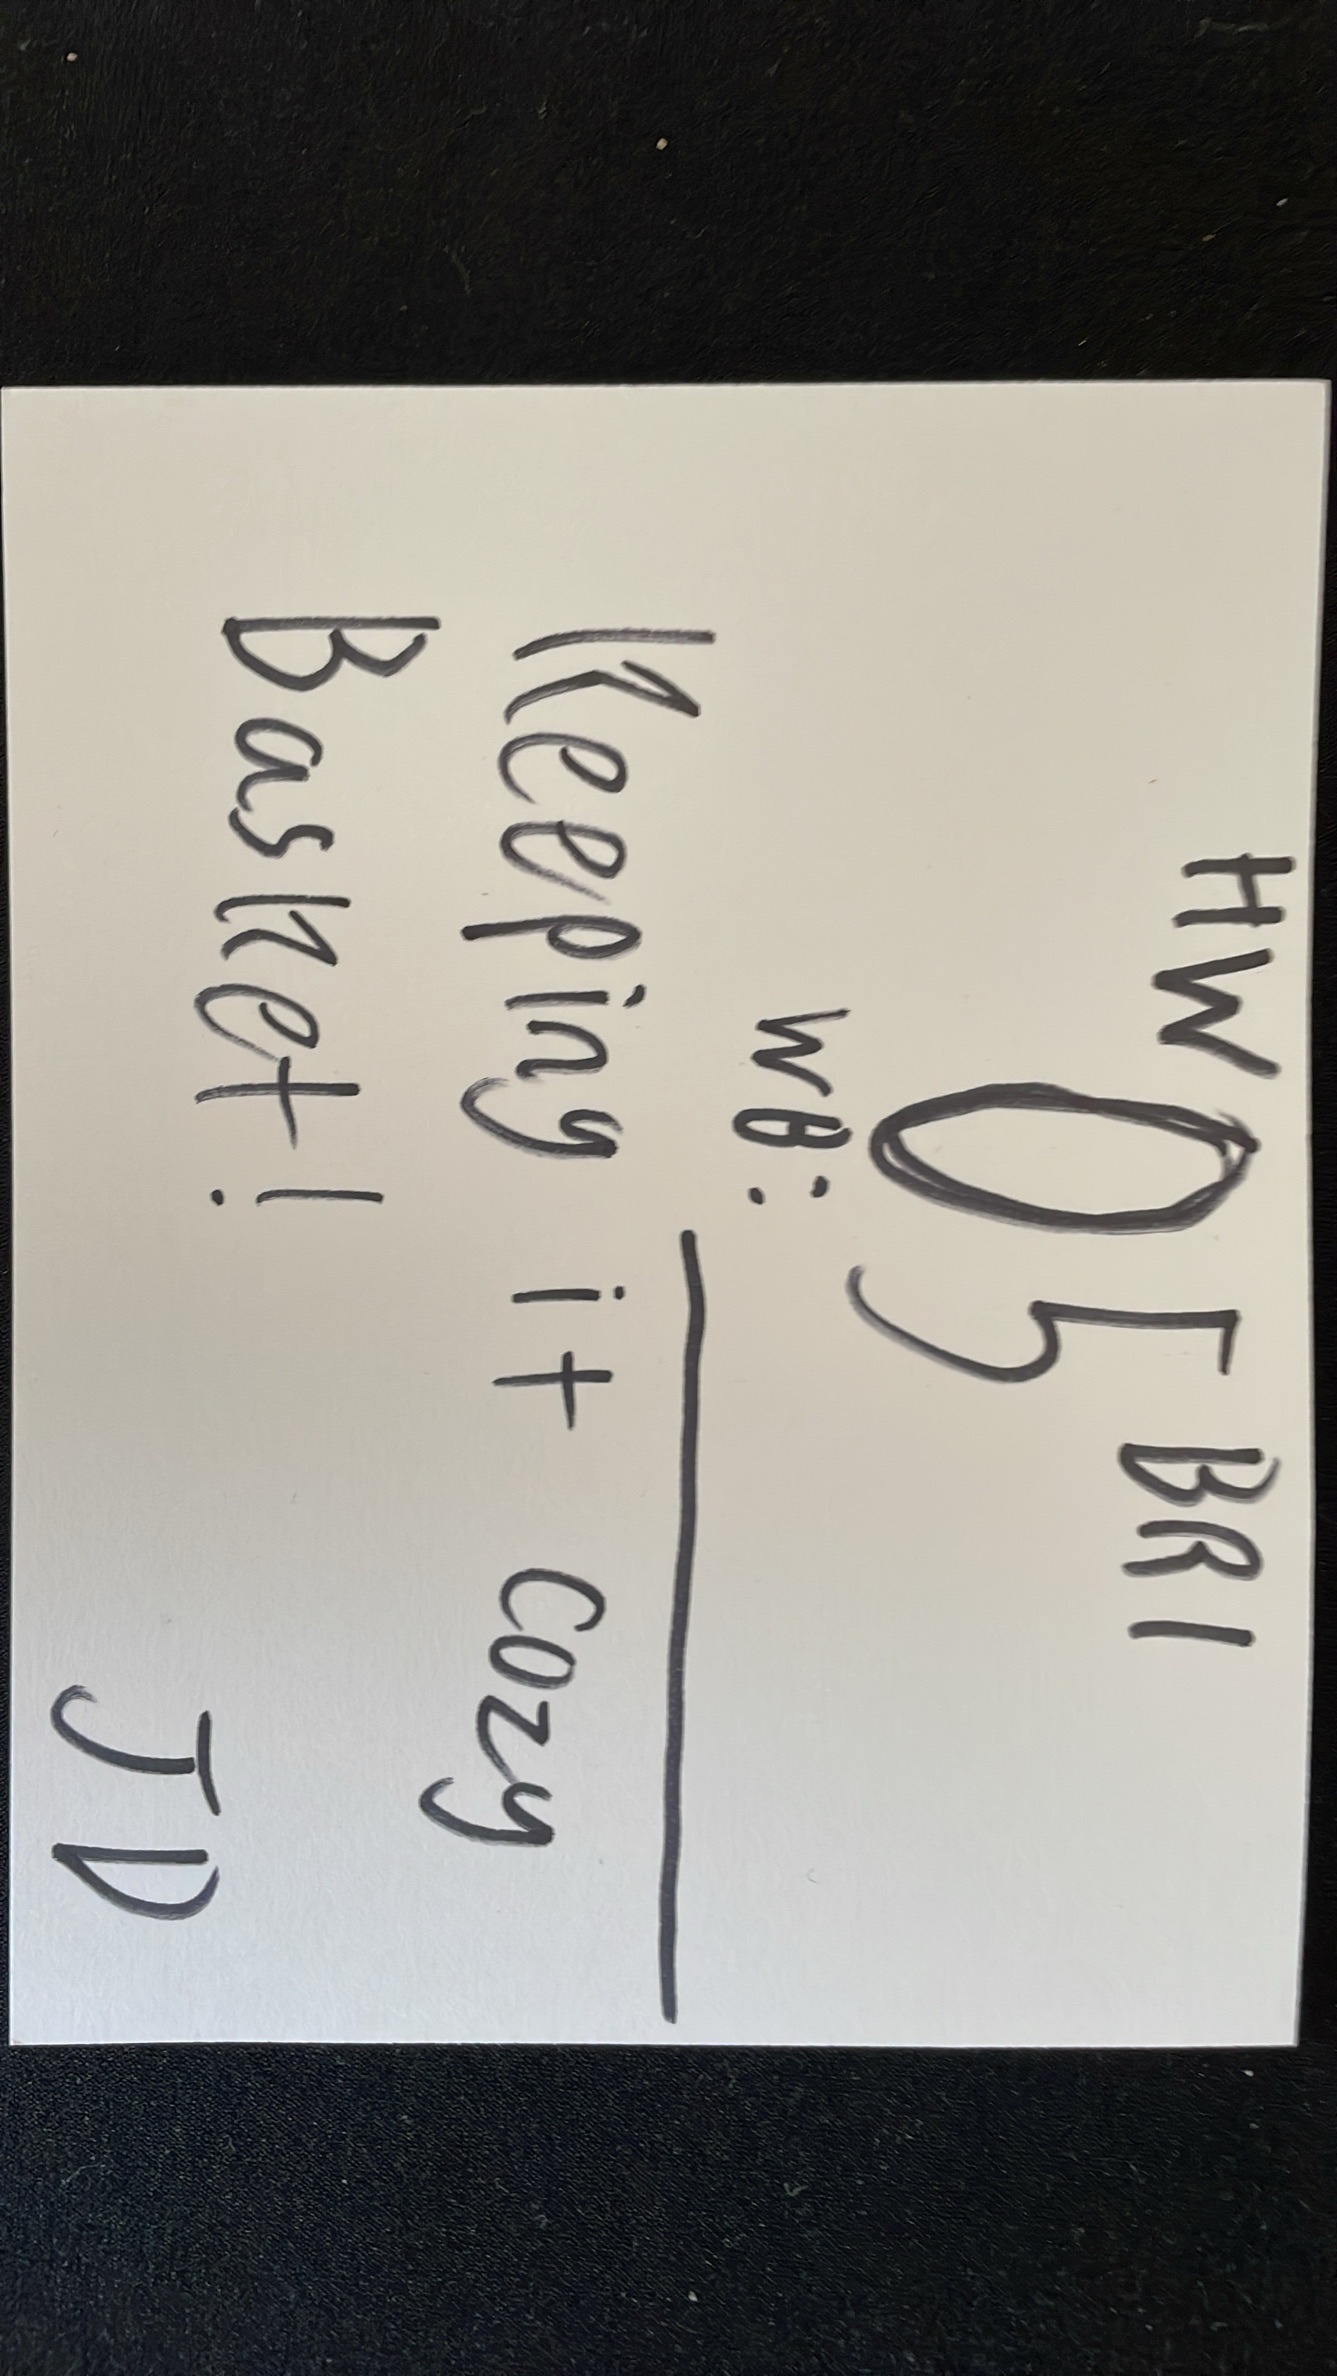 HW 05 BRI
WB:
Keeping it cozy
Basket!
JD